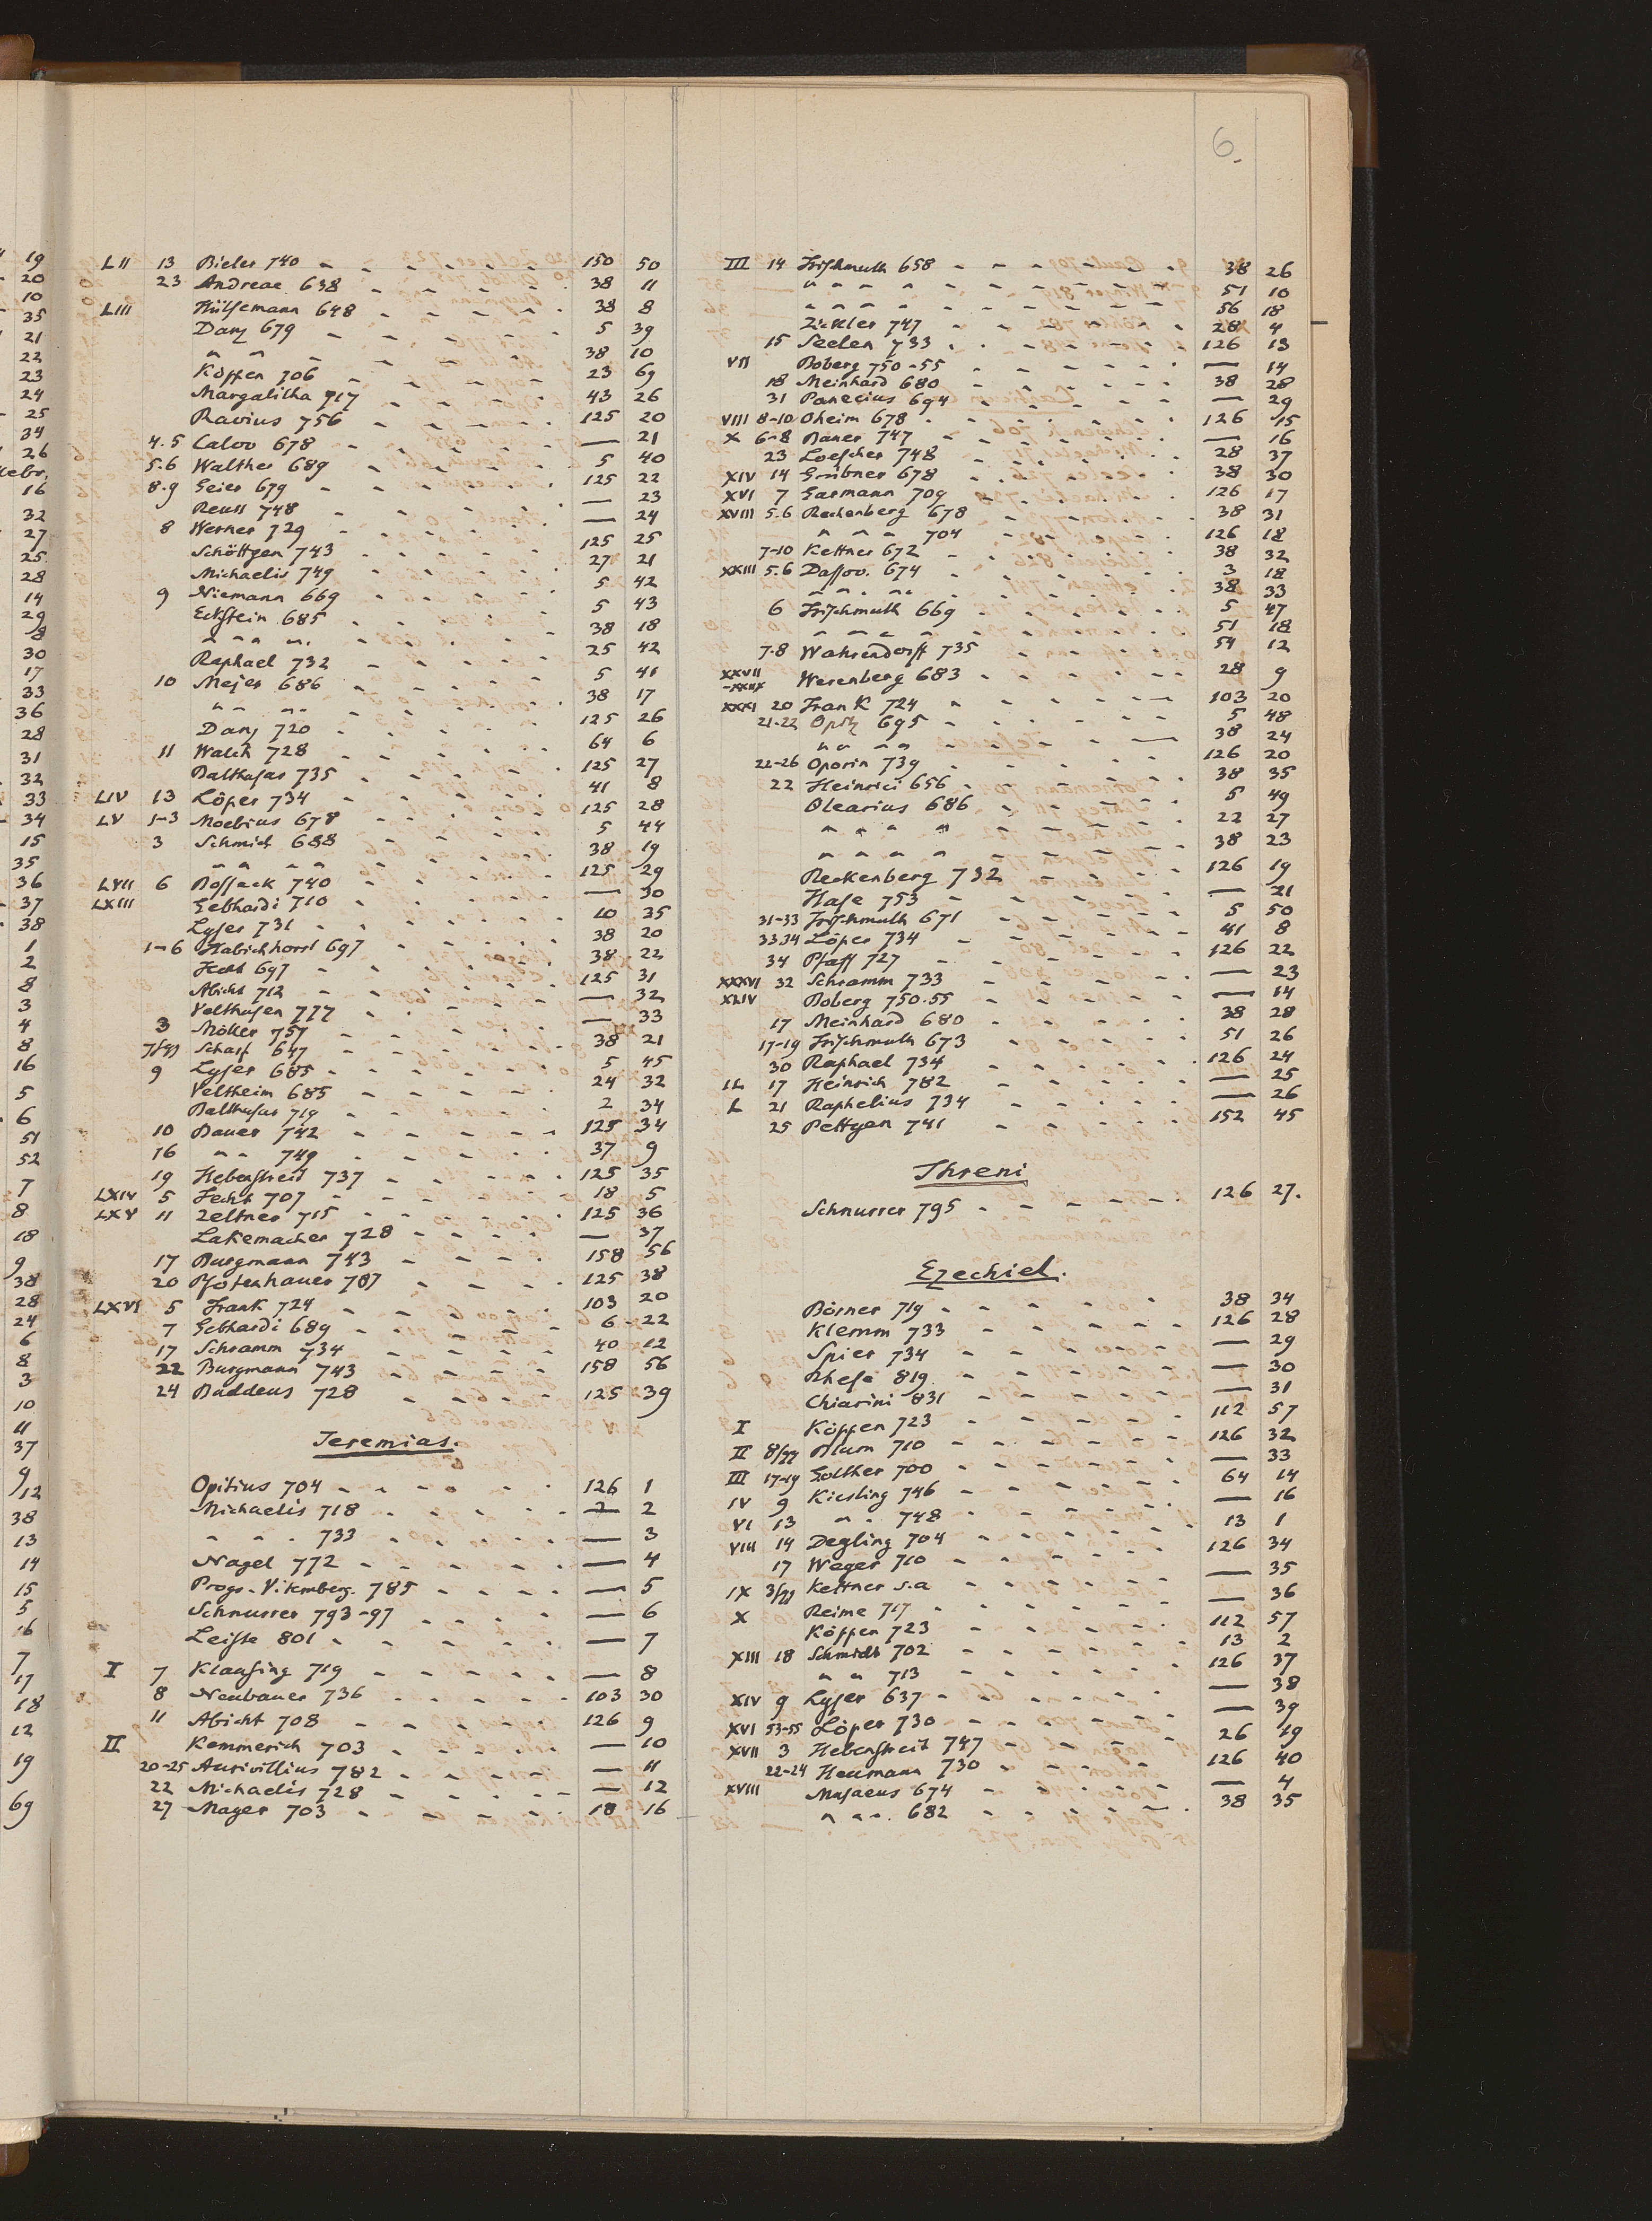 6.
LII 13 Bieler 740 - - - - - - 150 50
23 Andreae 638 - - - - - 38 11
LIII Hülsemann 648 - - - - - 38 8
Danz 679 - - - - - - 5 39
" " - - - - 38 10
Köppen 706 - - - - - 23 69
Margalitha 717 - - - - 43 26
Ravius 756 - - - - - 125 20
4.5 Calov 678 - - - - - — 21
5.6 Walther 689 - - - - - 5 40
8.9 Geier 679 - - - - - 125 22
Reuss 748 - - - - - — 23
8 Werner 729 - - - - - — 24
Schöttgen 743 - - - - - 125 25
Michaelis 749 - - - - - 27 21
9 Niemann 669 - - - - - 5 42
Eckstein 685 - - - - - 5 43
" " " - - - - - 38 18
Raphael 732 - - - - - 25 42
10 Mejer 686 - - - - - 5 41
" " " - - - - 38 17
Danz 720 - - - - - 125 26
11 Walch 728 - - - - - 64 6
Balthasar 735 - - - - - 125 27
LIV 13 Löper 734 - - - - - 41 8
LV 1-3 Moebius 678 - - - - - 125 28
3 Schmidt 688 - - - - - 5 44
" " " " - - - - 38 19
LVII 6 Bossack 740 - - - - - 125 29
LXIII Gebhardi 710 - - - - - — 30
Lyser 731 - - - - - 10 35
1-6 Habichhorst 697 - - - - 38 20
Hecht 697 - - - - - 38 22
Abicht 712 - - - - - 125 31
Velthusen 777 - - - - - — 32
3 Möller 757 - - - - - — 33
Scharf 647 - - - - - 38 21
9 Lyser 685 - - - - - 5 45
Veltheim 685 - - - - - 24 32
Balthasar 719 - - - - - 2 34
10 Bauer 742 - - - - - 125 34
16 " " 749 - - - - - 37 9
19 Hebenstreit 737 - - - - 125 35
LXIV 5 Hecht 707 - - - - - 18 5
LXV 11 Zeltner 715 - - - - - 125 36
Lakemacher 728 - - - - — 37
17 Burgmann 743 - - - - 158 56
20 Pfotenhauer 707 - - - - 125 38
LXVI 5 Frank 724 - - - - - 103 20
7 Gebhardi 689 - - - - - 6 22
17 Schramm 734 - - - - - 40 12
22 Burgmann 743 - - - - 158 56
24 Buddeus 728 - - - - - 125 39
Jeremias.
Opitius 704 - - - - - 126 1
Michaelis 718 - - - - - — 2
" " . 733 - - - - - — 3
Nagel 772 - - - - - — 4
Progr. Vitemberg. 785 - - - - — 5
Schnurrer 793-97 - - - - — 6
Leiste 801 - - - - - — 7
I 7 Klausing 719 - - - - - — 8
8 Neubauer 736 - - - - - 103 30
11 Abicht 708 - - - - - 126 9
II Kemmerich 703 - - - - - — 10
20-25 Aurivillius 782 - - - - — 11
22 Michaelis 728 - - - - - — 12
27 Mayer 703 - - - - - 18 16
III 14 Frischmuth 658 - - - - - 38 26
" " " " - - - - - 51 10
" " " " - - - - - 56 18
Zickler 747 - - - - - 28 4
15 Seelen 733 - - - - - 126 13
VII Boberg 750-55 - - - - - — 14
18 Meinhard 680 - - - - - 38 28
31 Panecius 694 - - - - - — 29
VIII 8-10 Oheim 678 - - - - - 126 15
X 6-8 Bauer 747 - - - - - — 16
23 Loescher 748 - - - - - 28 37
XIV 14 Grübner 678 - - - - - 38 30
XVI 7 Garmann 709 - - - - - 126 17
XVIII 5.6 Rechenberg 678 - - - - 38 31
" " " 704 - - - - 126 18
7-10 Kettner 672 - - - - - 38 32
XXIII 5.6 Dassov. 674 - - - - - 3 18
" " " " - - - - - 38 33
6 Frischmuth 669 - - - - - 5 47
" " " " - - - - - 51 18
7.8 Wahrendorff 735 - - - - 54 12
XXVII
-XXIX Werenberg 683 - - - - - 28 9
XXXI 20 Frank 724 - - - - - 103 20
21-22 Opitz 695 - - - - - 5 48
" " " " - - - - - 38 24
22-26 Oporin 739 - - - - - 126 20
22 Heinrici 656 - - - - - 38 35
Olearius 686 - - - - - 5 49
" " " " - - - - - 22 27
" " " " - - - - - 38 23
Reckenberg 732 - - - - 126 19
Hase 753 - - - - - — 21
31-33 Frischmuth 671 - - - - - 5 50
33.34 Löper 734 - - - - - 41 8
34 Pfaff 727 - - - - - 126 22
XXXVI 32 Schramm 733 - - - - - — 23
XLIV Boberg 750.55 - - - - - — 14
17 Meinhard 680 - - - - - 38 28
17-19 Frischmuth 673 - - - - - 51 26
30 Raphael 734 - - - - - 126 24
IL 17 Heinrich 782 - - - - - — 25
L 21 Raphelius 734 - - - - - — 26
25 Pettgen 741 - - - - - 152 45
Threni
Schnurrer 795 - - - - - 126 27.
Ezechiel.
Börner 719 - - - - - 38 34
Klemm 733 - - - - - 126 28
Spier 734 - - - - - — 29
Rhese 819 - - - - - — 30
Chiarini 831 - - - - - — 31
I Köppen 723 - - - - - 112 57
II Blum 710 - - - - - 126 32
III 17-19 Golther 700 - - - - - — 33
IV 9 Kiesling 746 - - - - - 64 14
VI 13 " . 748 - - - - - — 16
VIII 14 Degling 704 - - - - - 13 1
17 Weger 710 - - - - - 126 34
IX Kettner s.a - - - - - — 35
X Reime 717 - - - - - — 36
Köppen 723 - - - - - 112 57
XIII 18 Schmidt 702 - - - - - 13 2
" " 713 - - - - - 126 37
XIV 9 Lyser 637 - - - - - — 38
XVI 53-55 Löper 730 - - - - - — 39
XVII 3 Hebenstreit 747 - - - - 26 19
22-24 Heumann 730 - - - - 126 40
XVIII Musaeus 674 - - - - - — 4
" " . 682 - - - - - 38 35